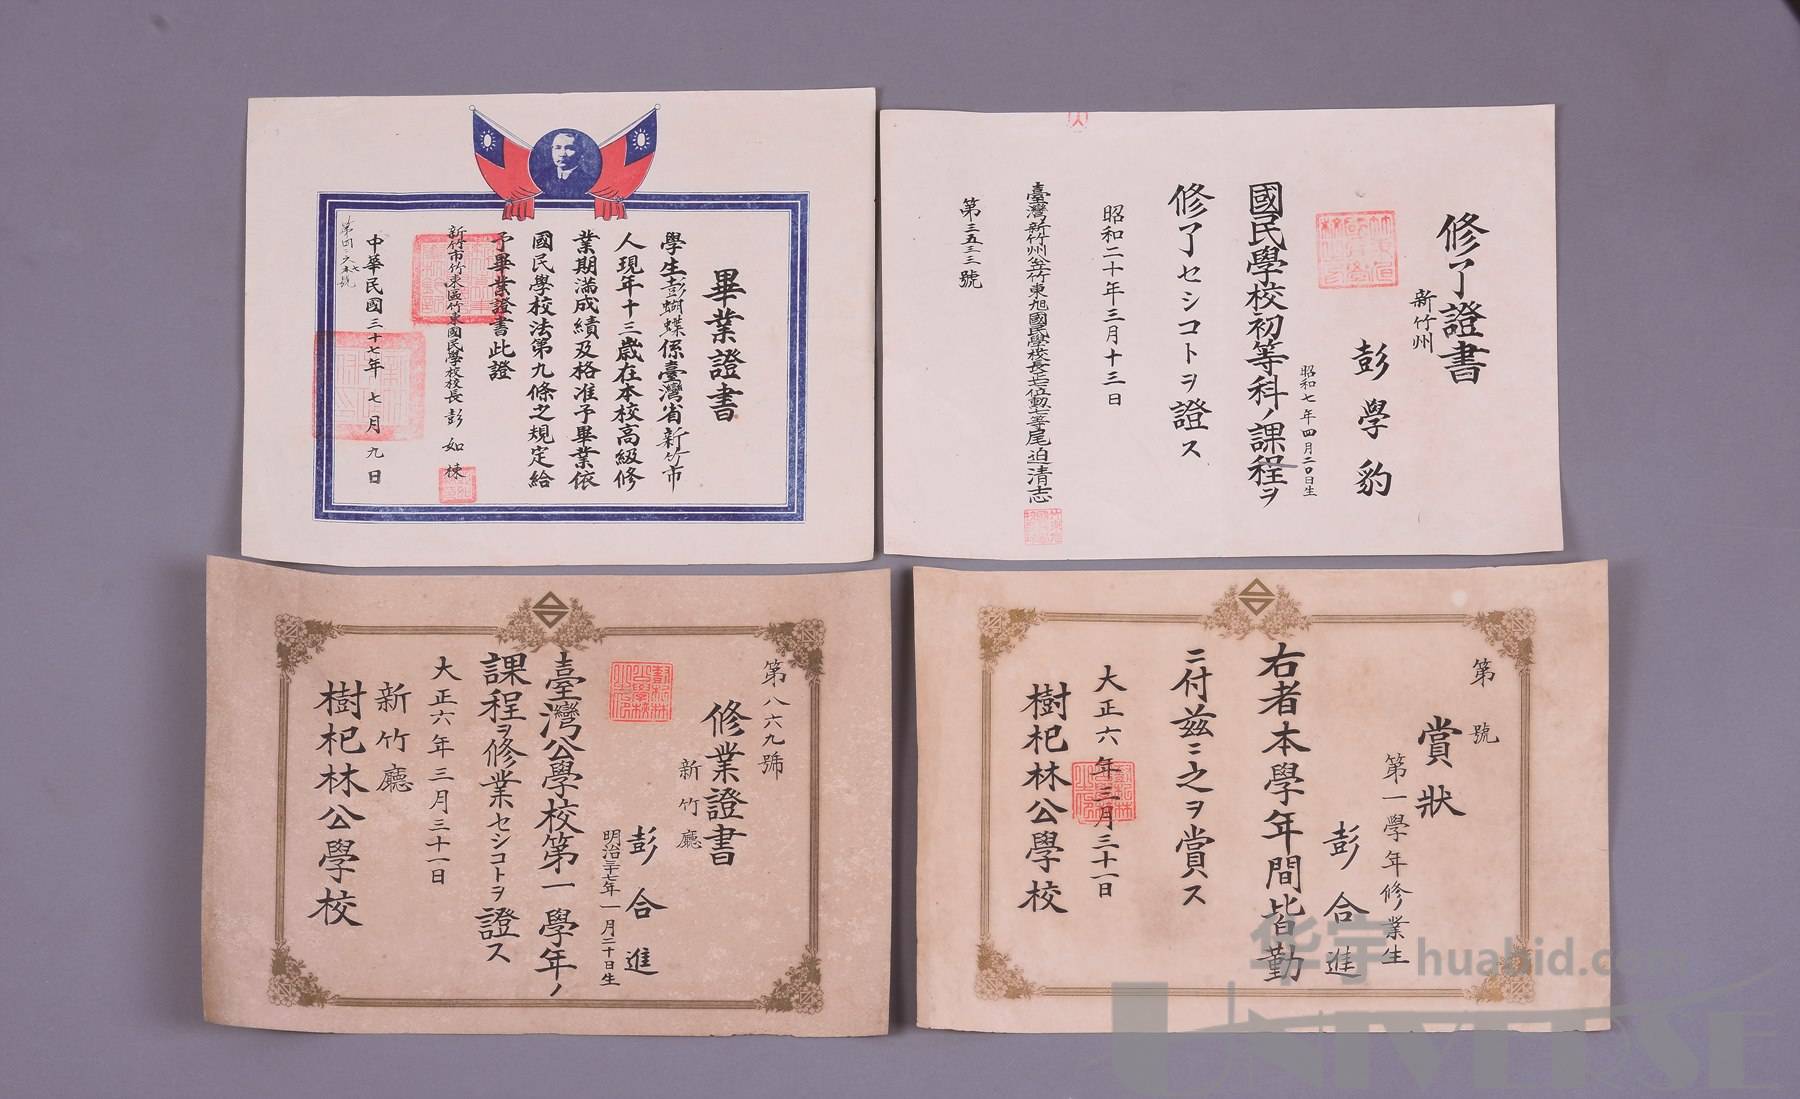 畢業證書
學生彭蝴蝶係臺灣省新竹市
人現年十三歲在本校高級修
業期滿成績及格准予畢業依
國民學校法第九條之規定給
予畢業證書此證
新竹市竹東區竹東國民學校校長 彭如棟
中華民國三十七年七月九日
修了證書
新竹州
彭學豹
昭和七年四月二〇日生
國民學校初等科ノ課程ヲ
修了セシコトヲ證ス
昭和二十年三月十三日
臺灣新竹州竹東旭國民學校長七位勳七等尾迫清志
第三五三三號
第八六九號
修業證書
新竹廳
彭合進
明治三十七年一月二十日生
臺灣公學校第一學年ノ
課程ヲ修業セシコトヲ證ス
大正六年三月三十一日
新竹廳
樹杞林公學校
第 號
賞狀
第一學年修業生
彭合進
右者本學年間皆勤
ニ付茲ニ之ヲ賞ス
大正六年三月三十一日
樹杞林公學校
华宇 huabid.co
UNIVERSE